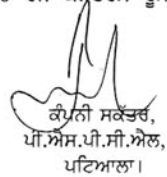 ਕੰਪਨੀ ਸਕੱਤਰ,
ਪੀ.ਐਸ.ਪੀ.ਸੀ.ਐਲ,
ਪਟਿਆਲਾ।